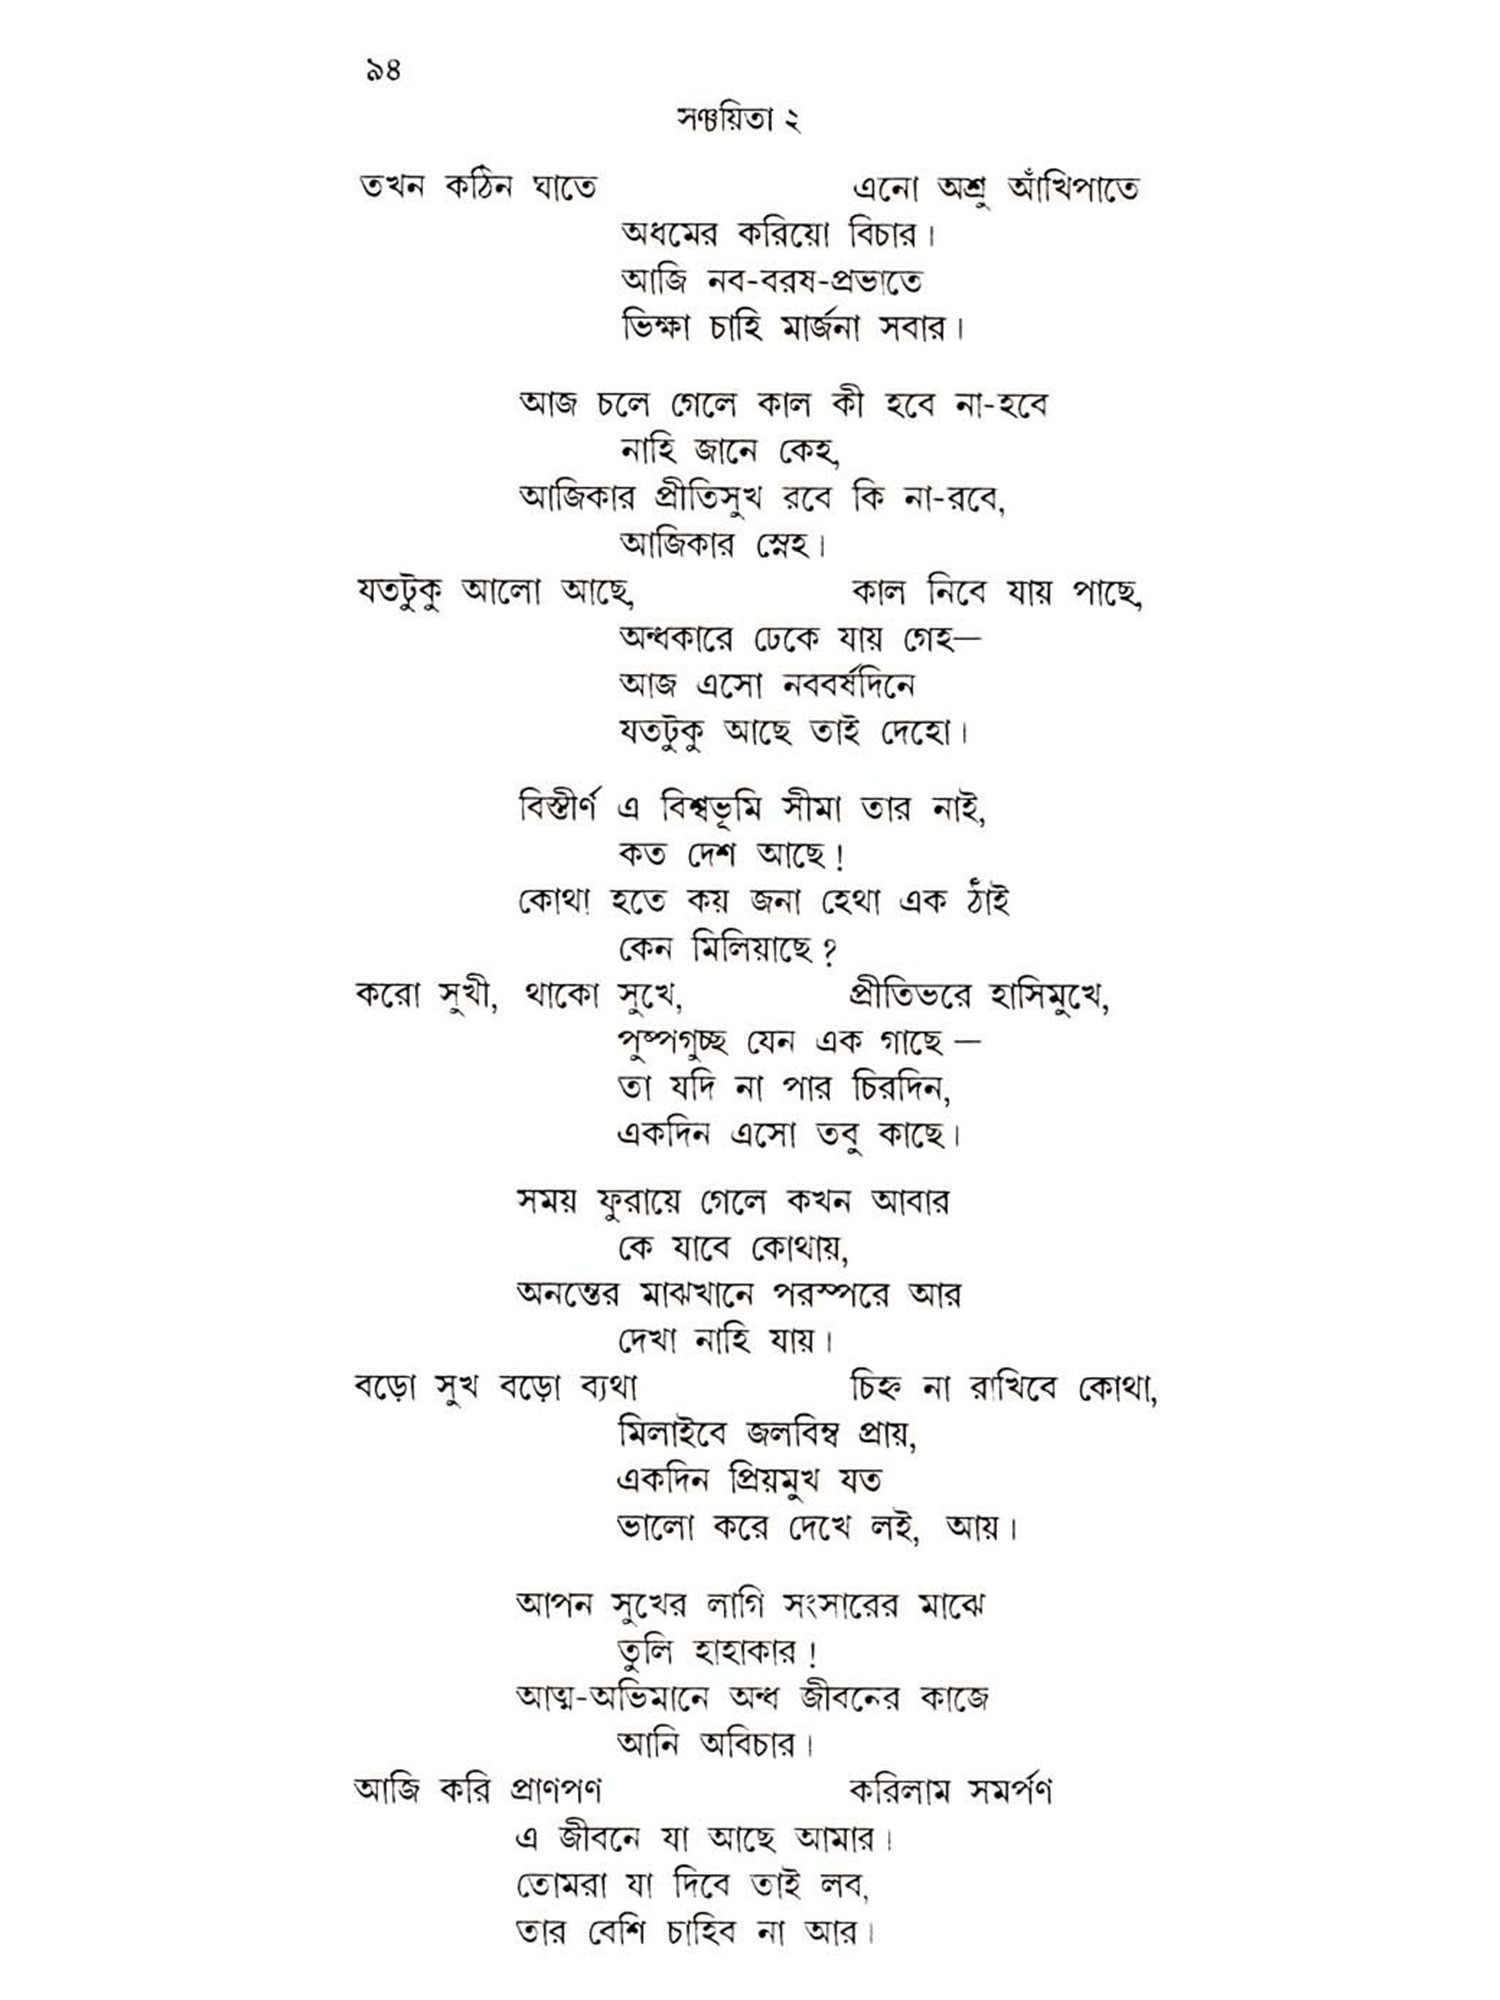 ৯৪
সঞ্চয়িতা ২
তখন কঠিন ঘাতে এনো অশ্রু আঁখিপাতে
অধমের করিয়ো বিচার।
আজি নব-বরষ-প্রভাতে
ভিক্ষা চাহি মার্জনা সবার।
আজ চলে গেলে কাল কী হবে না-হবে
নাহি জানে কেহ,
আজিকার প্রীতিসুখ রবে কি না-রবে,
আজিকার স্নেহ।
যতটুকু আলো আছে, কাল নিবে যায় পাছে,
অন্ধকারে ঢেকে যায় গেহ—
আজ এসো নববর্ষদিনে
যতটুকু আছে তাই দেহো।
বিস্তীর্ণ এ বিশ্বভূমি সীমা তার নাই,
কত দেশ আছে!
কোথা হতে কয় জনা হেথা এক ঠাঁই
কেন মিলিয়াছে?
করো সুখী, থাকো সুখে, প্রীতিভরে হাসিমুখে,
পুষ্পগুচ্ছ যেন এক গাছে —
তা যদি না পার চিরদিন,
একদিন এসো তবু কাছে।
সময় ফুরায়ে গেলে কখন আবার
কে যাবে কোথায়,
অনন্তের মাঝখানে পরস্পরে আর
দেখা নাহি যায়।
বড়ো সুখ বড়ো ব্যথা চিহ্ন না রাখিবে কোথা,
মিলাইবে জলবিম্ব প্রায়,
একদিন প্রিয়মুখ যত
ভালো করে দেখে লই, আয়।
আপন সুখের লাগি সংসারের মাঝে
তুলি হাহাকার!
আত্ম-অভিমানে অন্ধ জীবনের কাজে
আনি অবিচার।
আজি করি প্রাণপণ করিলাম সমর্পণ
এ জীবনে যা আছে আমার।
তোমরা যা দিবে তাই লব,
তার বেশি চাহিব না আর।